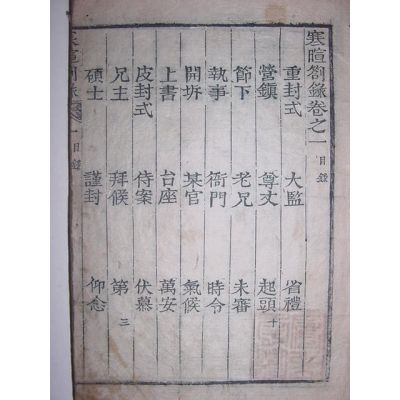 寒暄劄錄卷之一 目錄
重封式 大監 省禮
營鎭 尊丈 起頭 十
節下 老兄 未審
執事 衙門 時令
開坼 某官 氣候
上書 台座 萬安
皮封式 侍案 伏慕
兄主 拜候 第 三
碩士 謹封 仰念
劄錄 一 目錄